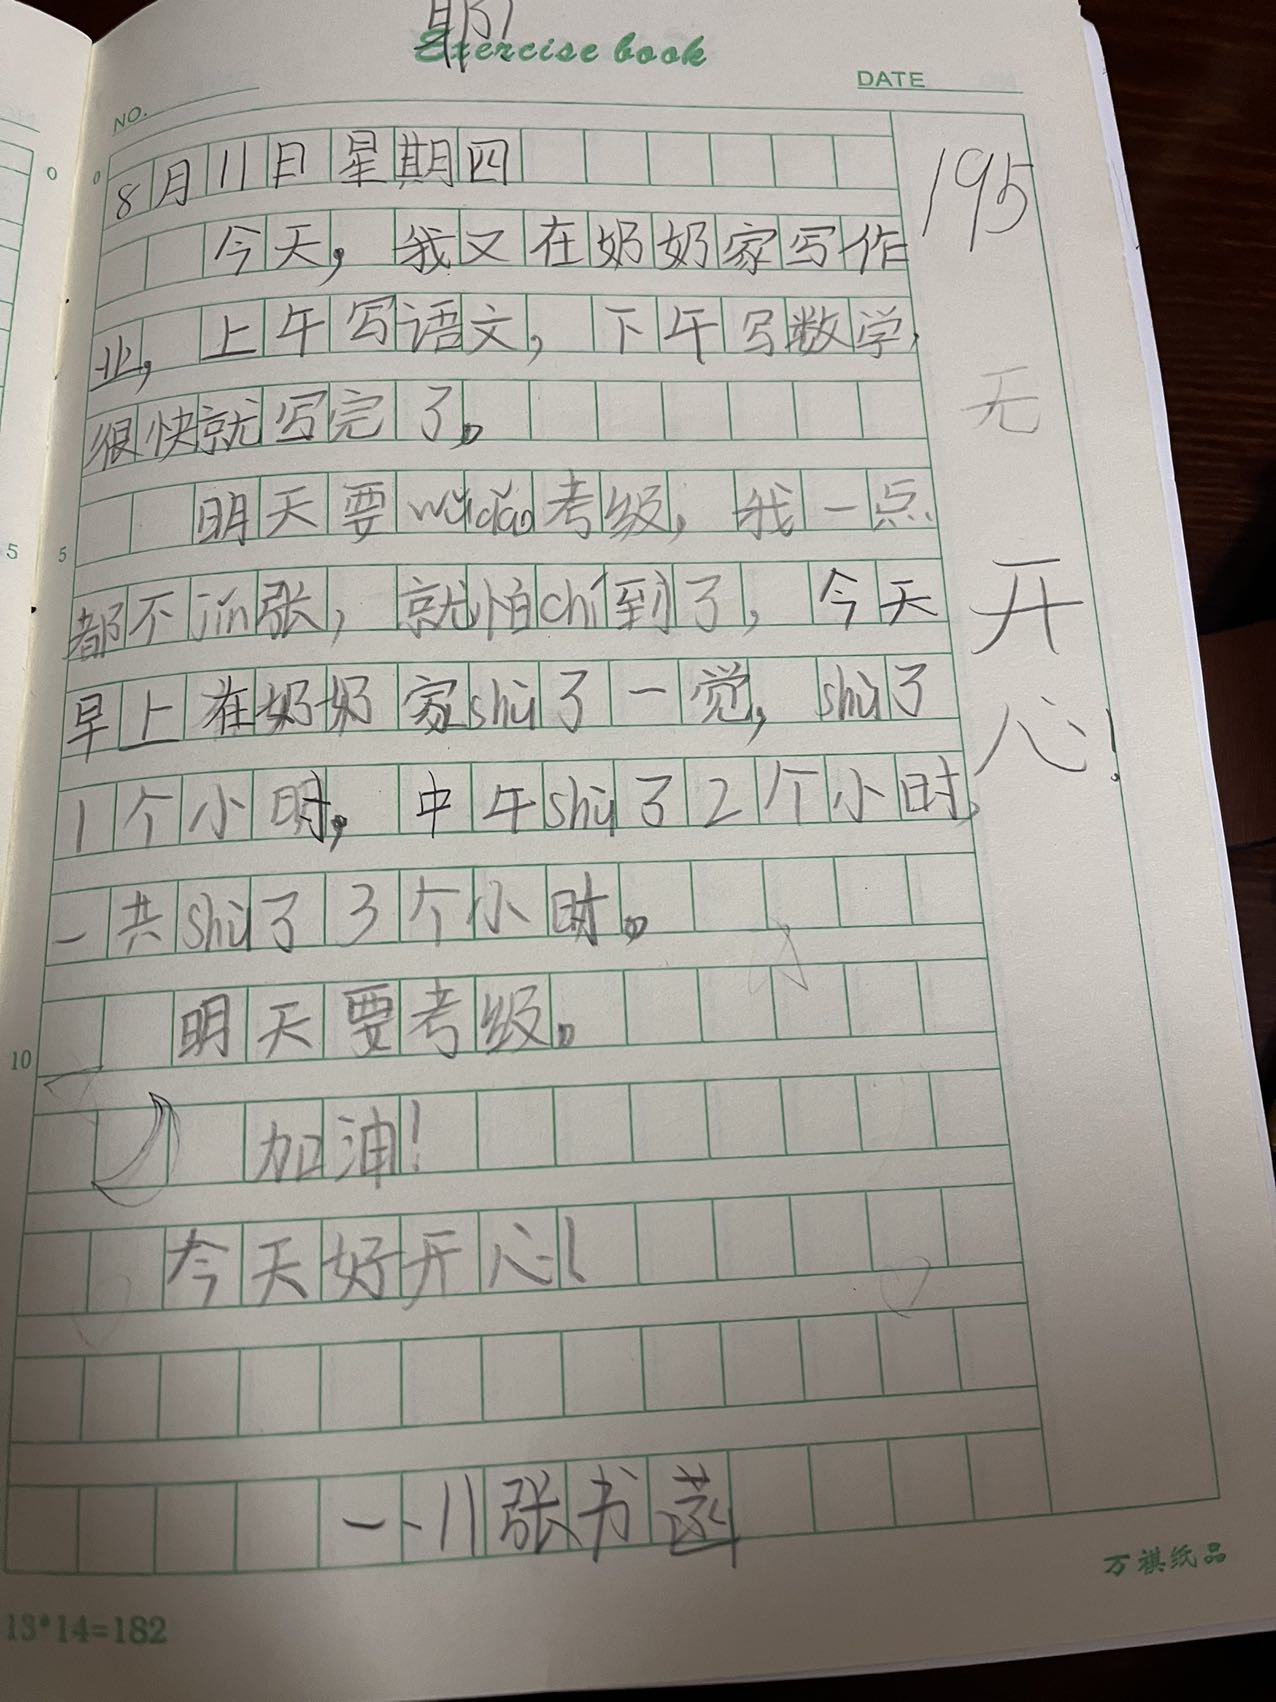 期
Exercise book
NO.
DATE
8月11日星期四
今天，我又在奶奶家写作
业，上午写语文，下午写数学，
很快就写完了。
明天要wǔdǎo考级，我一点
都不jǐn张，就怕chí到了，今天
早上在奶奶家shuì了一觉，shuì了
1个小时，中午shuì了2个小时，
一共shuì了3个小时。
明天要考级。
加油！
今天好开心！
张书菡
195
天
开
心！
0
5
10
0
5
万祺纸品
13*14=182